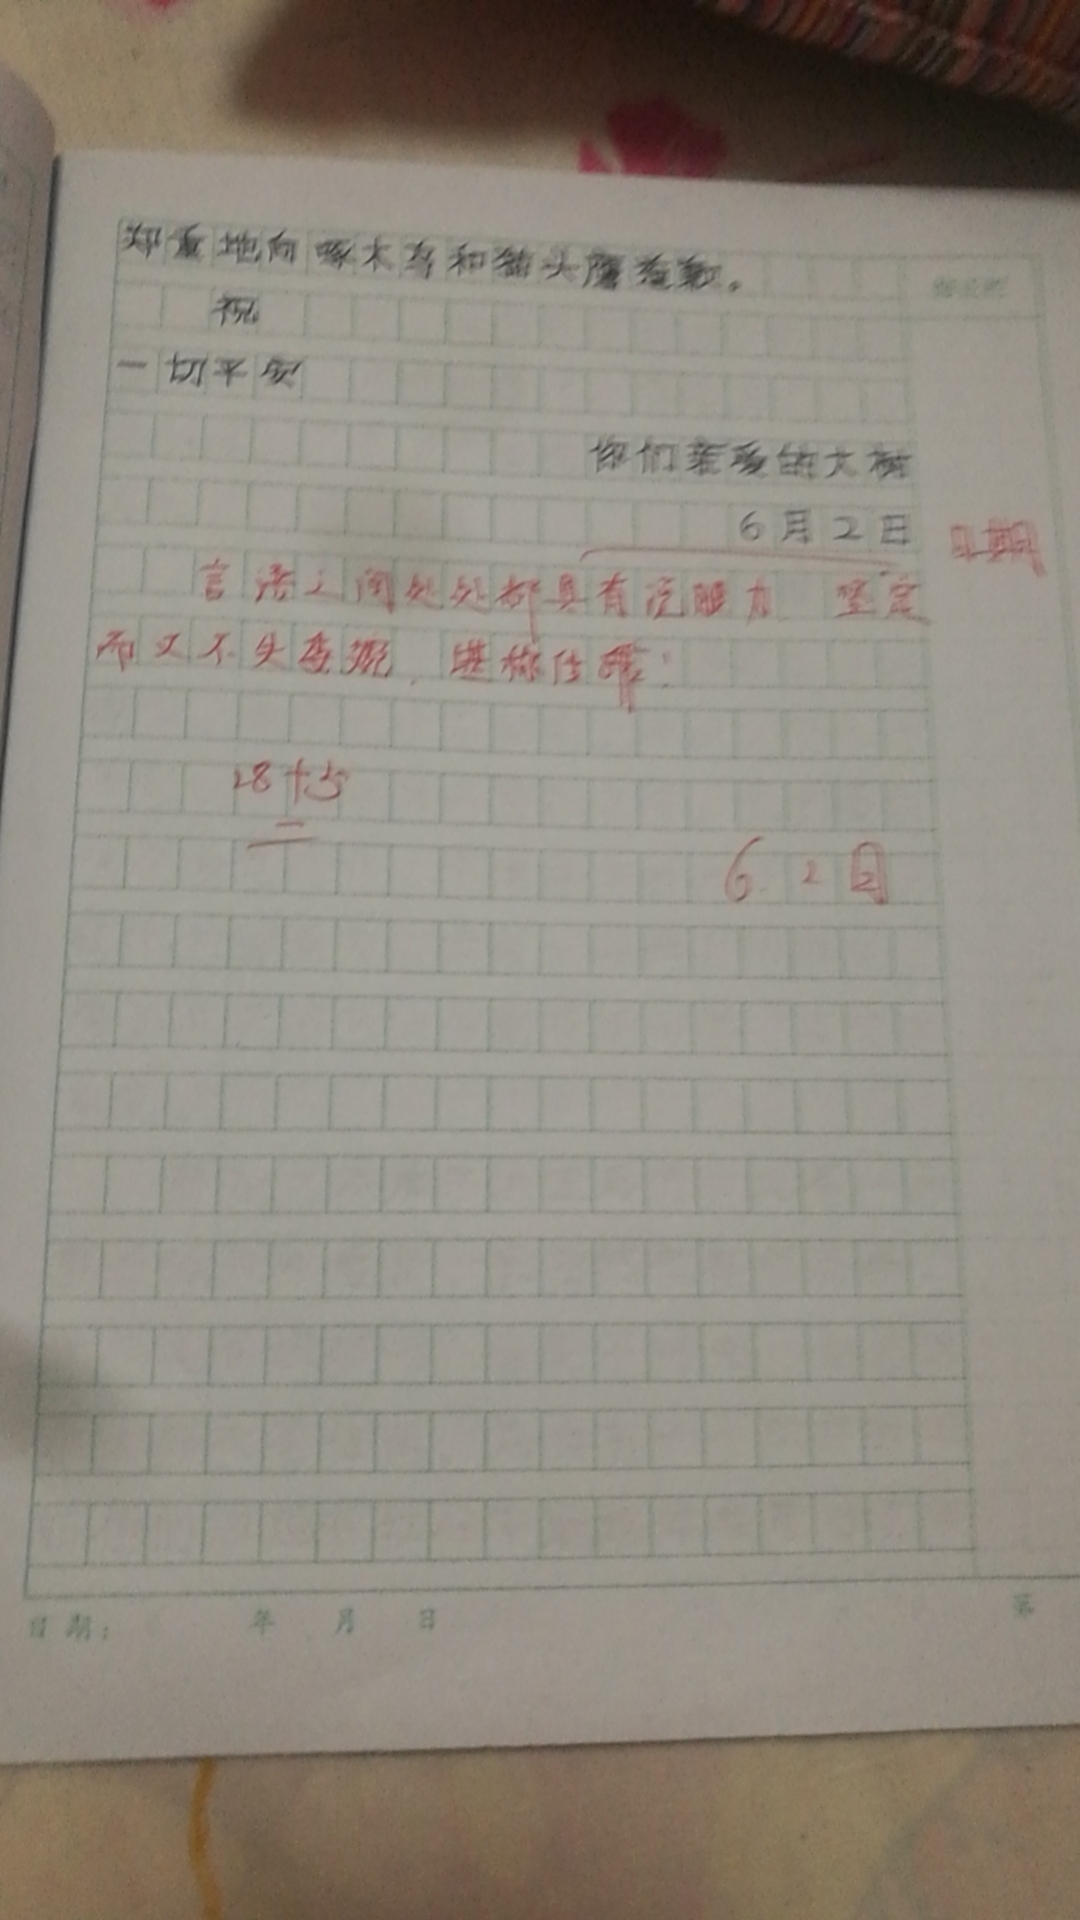 郑重地向啄木鸟和猫头鹰道歉。
祝
一切平安
你们亲爱的大树
6月2日
日期
言语之间处处都具有说服力 坚定
而又不失委婉，堪称佳作！
28+5
6.2日
日期： 年 月 日
第